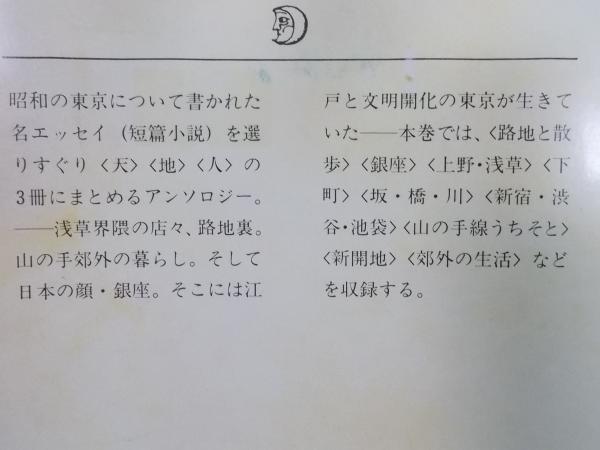 昭和の東京について書かれた
名エッセイ（短篇小説）を選
りすぐり〈天〉〈地〉〈人〉の
3冊にまとめるアンソロジー。
――浅草界隈の店々、路地裏。
山の手郊外の暮らし。そして
日本の顔・銀座。そこには江
戸と文明開化の東京が生きて
いた――本巻では、〈路地と散
歩〉〈銀座〉〈上野・浅草〉〈下
町〉〈坂・橋・川〉〈新宿・渋
谷・池袋〉〈山の手線うちそと〉
〈新開地〉〈郊外の生活〉など
を収録する。